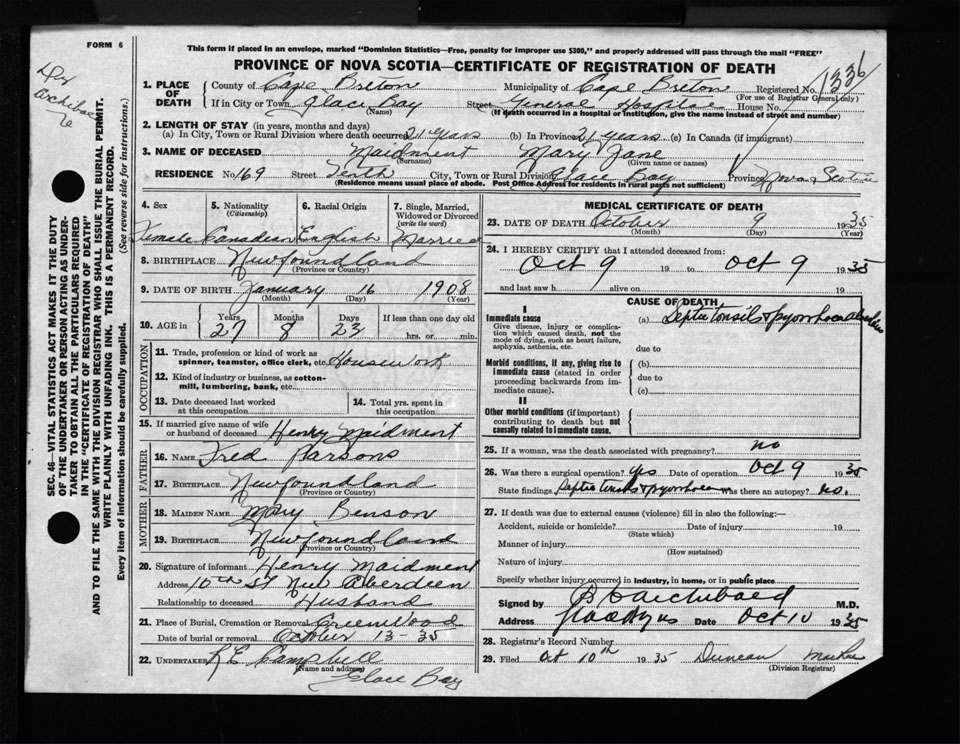 FORM 6
This form if placed in an envelope, marked "Dominion Statistics—Free, penalty for improper use $300," and properly addressed will pass through the mail "FREE"
PROVINCE OF NOVA SCOTIA—CERTIFICATE OF REGISTRATION OF DEATH
1. PLACE OF DEATH County of Cape Breton Municipality of Cape Breton Registered No. 1336
(For use of Registrar General only)
If in City or Town Glace Bay Street General Hospital House No.
(Name) (If death occurred in a hospital or institution, give the name instead of street and number)
2. LENGTH OF STAY (in years, months and days)
(a) In City, Town or Rural Division where death occurred 21 years (b) In Province 21 years (c) In Canada (if immigrant)
3. NAME OF DECEASED Maidment Mary Jane
(Surname) (Given name or names)
RESIDENCE No. 169 Street Tenth City, Town or Rural Division Glace Bay Province Nova Scotia
(Residence means usual place of abode. Post Office Address for residents in rural parts not sufficient)
4. Sex 5. Nationality (Citizenship) 6. Racial Origin 7. Single, Married, Widowed or Divorced (write the word)
Female Canadian English Married
8. BIRTHPLACE Newfoundland
(Province or Country)
9. DATE OF BIRTH January 16 1908
(Month) (Day) (Year)
10. AGE in Years Months Days If less than one day old
27 8 23 hrs. or min.
OCCUPATION
11. Trade, profession or kind of work as spinner, teamster, office clerk, etc. Housework
12. Kind of industry or business, as cotton-mill, lumbering, bank, etc.
13. Date deceased last worked at this occupation 14. Total yrs. spent in this occupation
15. If married give name of wife or husband of deceased Henry Maidment
FATHER
16. NAME Fred Parsons
17. BIRTHPLACE Newfoundland
(Province or Country)
MOTHER
18. MAIDEN NAME Mary Benson
19. BIRTHPLACE Newfoundland
(Province or Country)
20. Signature of informant Henry Maidment
Address 10th St New Aberdeen
Relationship to deceased Husband
21. Place of Burial, Cremation or Removal Greenwood
Date of burial or removal October 13-35
22. UNDERTAKER R E Campbell
(Name and address)
Glace Bay
MEDICAL CERTIFICATE OF DEATH
23. DATE OF DEATH October 9 1935
(Month) (Day) (Year)
24. I HEREBY CERTIFY that I attended deceased from:
Oct 9 19 to Oct 9 1935
and last saw h alive on 19
CAUSE OF DEATH
I
Immediate cause (a) Septic tonsils & pyorrhoea
Give disease, injury or complication which caused death, not the mode of dying, such as heart failure, asphyxia, asthenia, etc.
due to
Morbid conditions, if any, giving rise to immediate cause (stated in order proceeding backwards from immediate cause).
(b)
due to
(c)
II
Other morbid conditions (if important) contributing to death but not causally related to immediate cause.
25. If a woman, was the death associated with pregnancy? no
26. Was there a surgical operation? yes Date of operation Oct 9 1935
State findings Septic tonsils & pyorrhoea Was there an autopsy? no.
27. If death was due to external causes (violence) fill in also the following:—
Accident, suicide or homicide? Date of injury 19
(State which)
Manner of injury
(How sustained)
Nature of injury
Specify whether injury occurred in industry, in home, or in public place
Signed by Archibald M.D.
Address Date Oct 10 1935
28. Registrar's Record Number
29. Filed Oct 10th 1935 Duncan MacRae
(Division Registrar)
SEC. 46—VITAL STATISTICS ACT MAKES IT THE DUTY
OF THE UNDERTAKER OR PERSON ACTING AS UNDER-
TAKER TO OBTAIN ALL THE PARTICULARS REQUIRED
IN THE "CERTIFICATE OF REGISTRATION OF DEATH"
AND TO FILE THE SAME WITH THE DIVISION REGISTRAR WHO SHALL ISSUE THE BURIAL PERMIT.
WRITE PLAINLY WITH UNFADING INK. THIS IS A PERMANENT RECORD.
Every item of information should be carefully supplied. (See reverse side for instructions.)